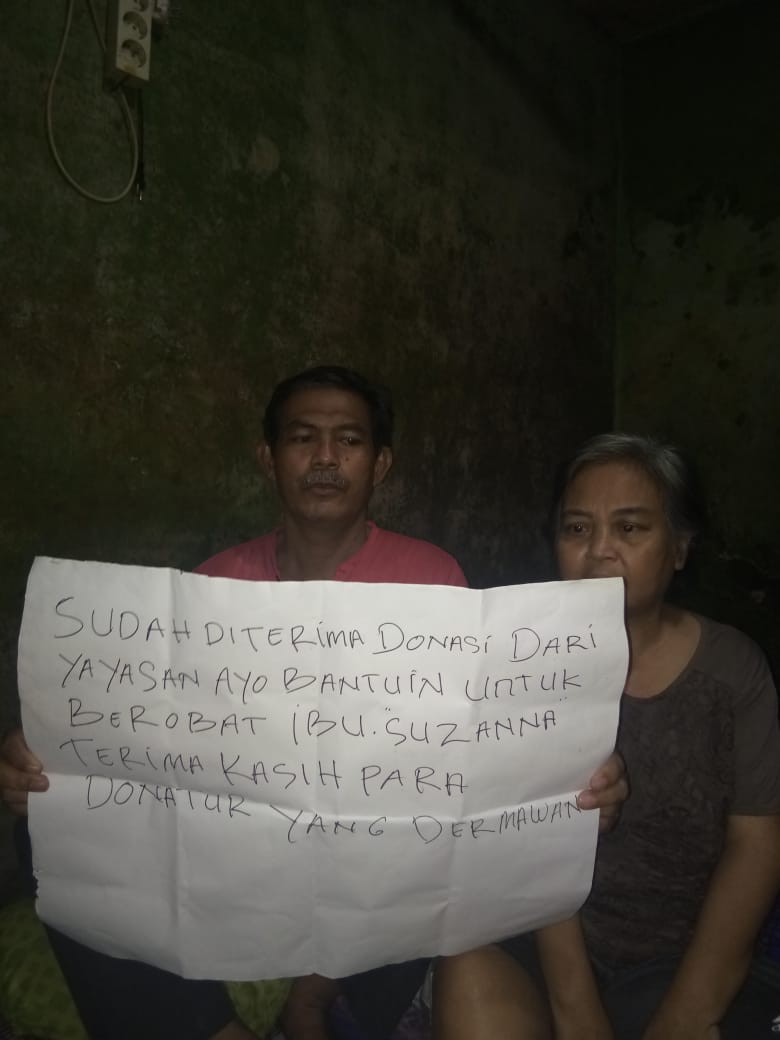 SUDAH DITERIMA DONASI DARI
YAYASAN AYO BANTUIN UNTUK
BEROBAT IBU. "SUZANNA"
TERIMA KASIH PARA
DONATUR YANG DERMAWAN